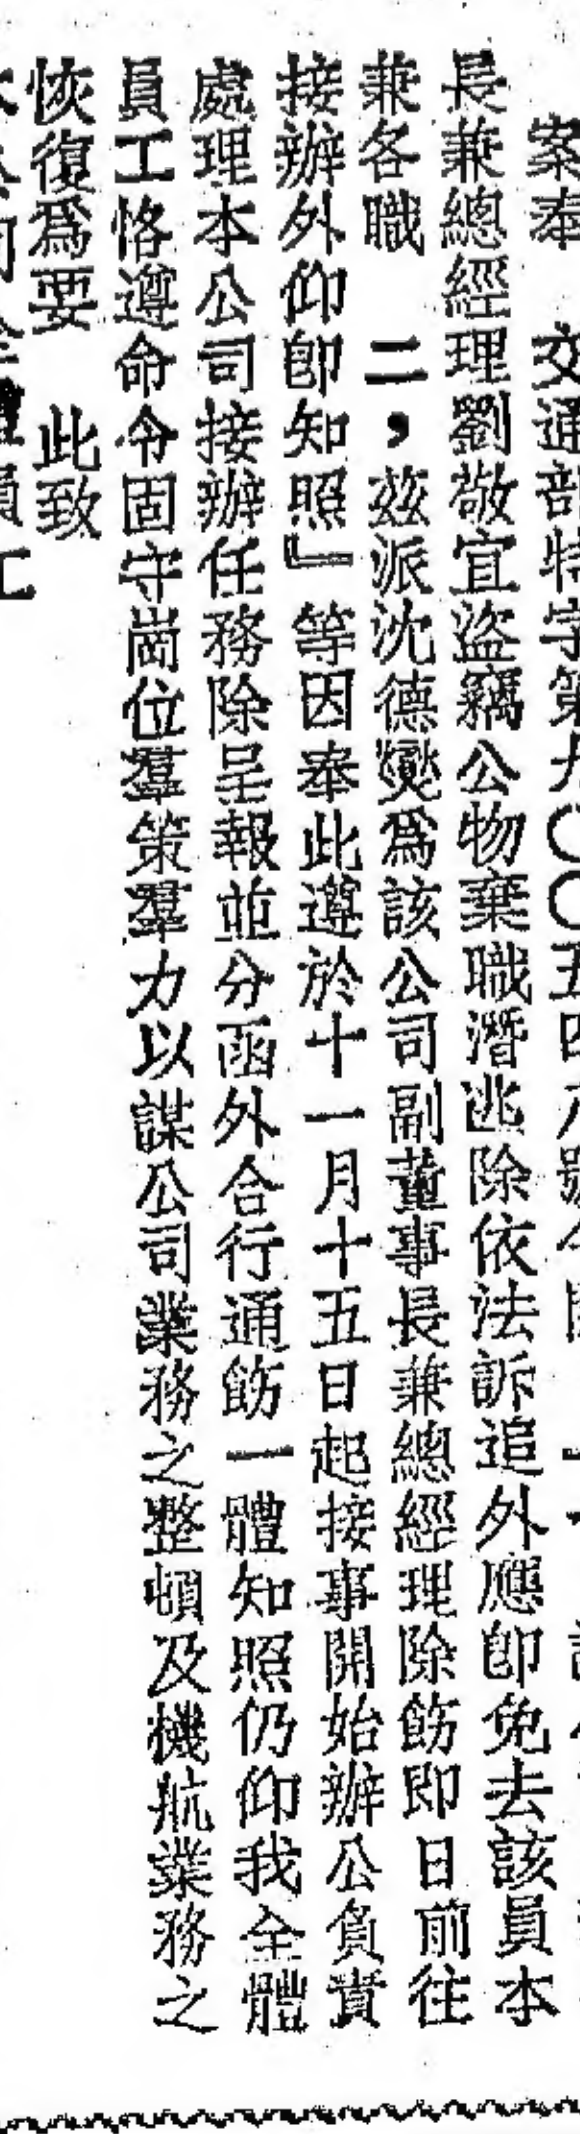 案奉　交通部特字第九〇〇五四
長兼總經理劉敬宜盜竊公物棄職潛逃除依法訴追外應即免去該員本
兼各職　二，茲派沈德燮為該公司副董事長兼總經理除飭即日前往
接辦外仰即知照』等因奉此遵於十一月十五日起接事開始辦公負責
處理本公司接辦任務除呈報並分函外合行通飭一體知照仍仰我全體
員工恪遵命令固守崗位羣策羣力以謀公司業務之整頓及機航業務之
恢復為要　此致
員工